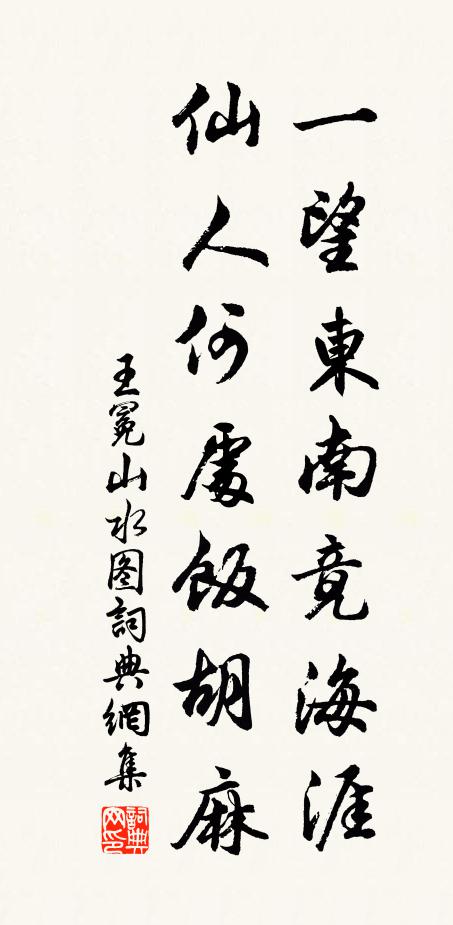 一望東南竟海涯
仙人何處飯胡麻
王冕山水图詞典網集
詞典网印